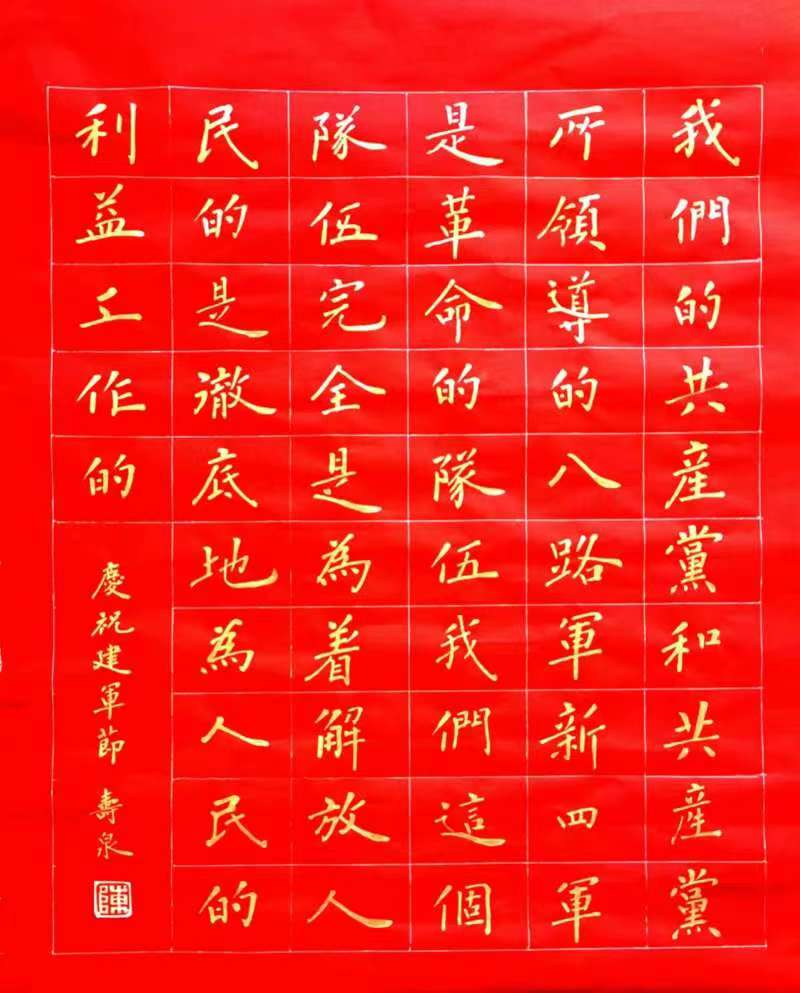 我們的共産黨和共産黨
所領導的八路軍新四軍
是革命的隊伍我們這個
隊伍完全是為着解放人
民的是徹底地為人民的
利益工作的
慶祝建軍節 壽泉
陳